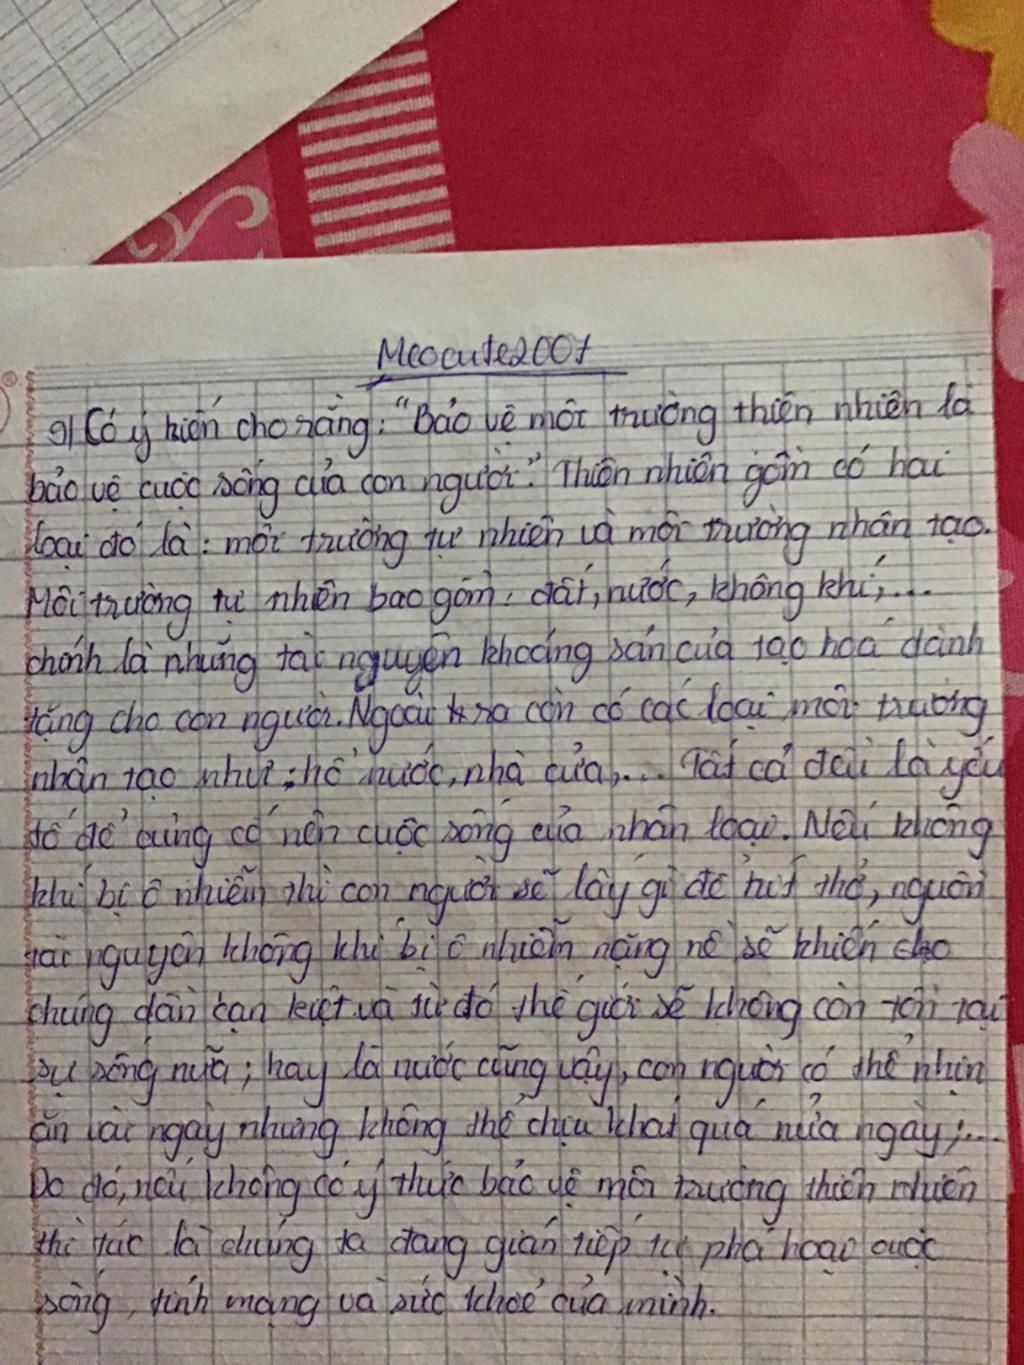 Meocute2007
g) Có ý kiến cho rằng: "Bảo vệ môi trường thiên nhiên là
bảo vệ cuộc sống của con người." Thiên nhiên gồm có hai
loại đó là: môi trường tự nhiên và môi trường nhân tạo.
Môi trường tự nhiên bao gồm: đất, nước, không khí,...
chính là những tài nguyên khoáng sản của tạo hoá dành
tặng cho con người. Ngoài ra còn có các loại môi trường
nhân tạo như: hồ nước, nhà cửa,... Tất cả đều là yếu
tố để củng cố nên cuộc sống của nhân loại. Nếu không
khí bị ô nhiễm thì con người sẽ lấy gì để hít thở, nguồn
tài nguyên không khí bị ô nhiễm nặng nề sẽ khiến cho
chúng dần cạn kiệt và từ đó thế giới sẽ không còn tồn tại
sự sống nữa; hay là nước cũng vậy, con người có thể nhịn
ăn vài ngày nhưng không thể chịu khát quá nửa ngày;...
Do đó, nếu không có ý thức bảo vệ môi trường thiên nhiên
thì tức là chúng ta đang gián tiếp tự phá hoại cuộc
sống, tính mạng và sức khoẻ của mình.